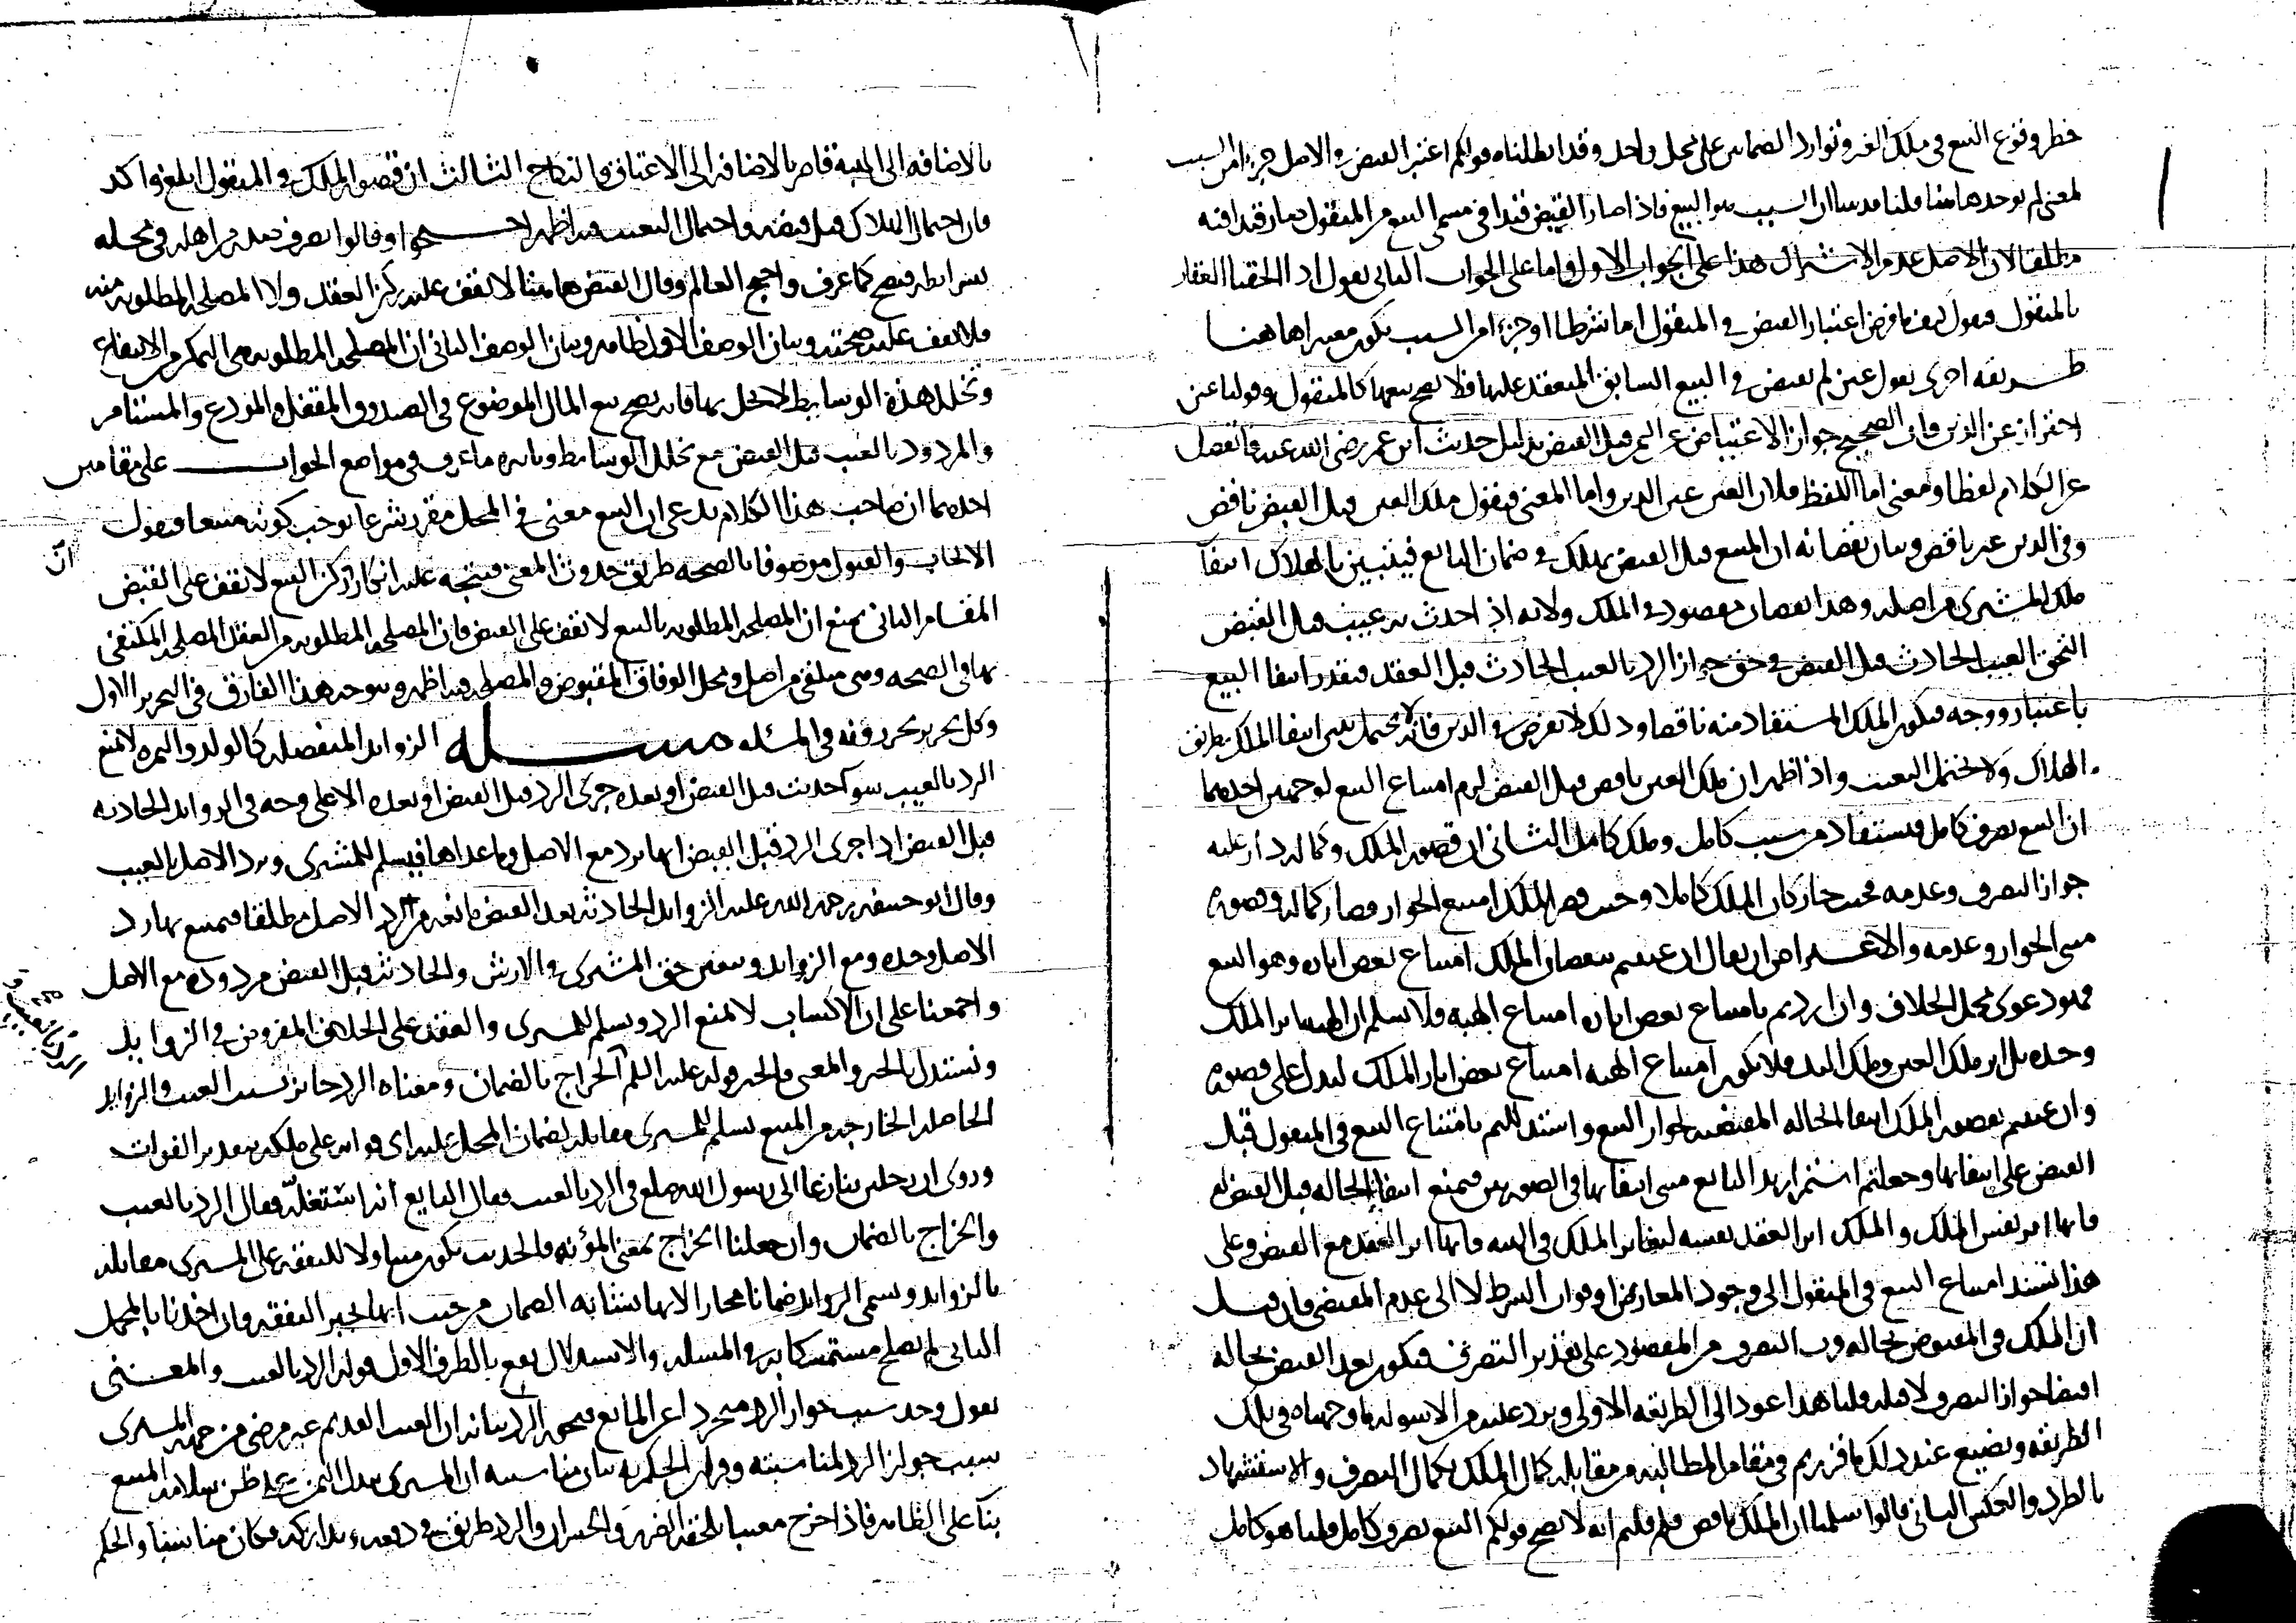 خطر وقوع البيع في ملك الغير وتوارد الضمانين على محل واحد وقد ابطلناه قولكم اعتبر القبض في الاصل جزءا من السبب
لمعنى لم يوجد هاهنا قلنا قد بينا ان السبب هو البيع فاذا صار القبض قيدا في مسمى البيع من المنقول صار قيدا فيه
مطلقا لان الاصل عدم الاشتراك هذا على الجواب الاول واما على الجواب الثاني نقول اذا الحقنا العقار
بالمنقول فنقول كيف ما فرض اعتبار القبض في المنقول اما شرطا او جزءا من السبب يكون معتبرا هاهنا
طريقة اخرى نقول عين لم تقبض في البيع السابق المنعقد عليها فلا يصح بيعها كالمنقول وقولنا عين
احتراز عن الدين فان الصحيح جواز الاعتياض عن الثمن قبل القبض بدليل حديث ابن عمر رضي الله عنه فانفصل
عن الكلام لفظا ومعنى اما اللفظ فلان العين غير الدين واما المعنى فنقول ملك العين قبل القبض ناقص
وفي الدين غير ناقص وبيان نقصانه ان المبيع قبل القبض يهلك في ضمان البائع فيتبين بالهلاك انتفاء
ملك المشتري من اصله وهذا نقصان وقصور في الملك ولانه اذا حدث به عيب قبل القبض
التحق العيب الحادث قبل القبض في حق جواز الرد بالعيب الحادث قبل العقد فيقدر انتفاء البيع
باعتبار ووجه فيكون الملك المستفاد منه ناقصا وذلك لا يفرض في الدين فانه لا يحتمل تبين انتفاء الملك بطريق
الهلاك ولا يحتمل التعيب واذا ظهر ان ملك العين ناقص قبل القبض لزم امتناع البيع لوجهين احدهما
ان البيع تصرف كامل فيستفاد من سبب كامل وملك كامل الثاني ان قصور الملك وكماله دار عليه
جواز التصرف وعدمه فحيث جاز كان الملك كاملا وحيث قصر الملك امتنع الجواز فصار كماله وقصوره
مبنى الجواز وعدمه والاعتراض ان يقال ان عنيتم بنقصان الملك امتناع بعض اثاره وهو البيع
فهو دعوى محل الخلاف وان اردتم به امتناع بعض اثاره امتناع الهبة فلا نسلم ان الهبة اثر الملك
وحده بل اثر ملك العين وملك اليد فلا يكون امتناع الهبة امتناع بعض اثار الملك ليدل على قصوره
وان عنيتم بقصور الملك انتفاء الحالة المقتضية لجواز البيع واستدللتم بامتناع البيع في المنقول قبل
القبض على انتفائها وجعلتم استمرار يد البائع مبنى انتفائها في الصورتين فيمنع انتفاء الحالة قبل القبض
فانها اثر نفس الملك والملك اثر العقد نفسه لبقاء اثر الملك في الهبة فانها اثر العقد مع القبض وعلى
هذا استند امتناع البيع في المنقول الى وجود المعارض او فوات الشرط لا الى عدم المقتضي فان قيل
ان الملك في المقبوض بحاله وب التصرف من المقصود على تقدير التصرف فيكون بعد القبض بحاله
اقتضا جواز التصرف لا قبله قلنا هذا عود الى الطريقة الاولى ويرد عليه من الاسولة ما وجهناه في تلك
الطريقة ويضيع عند ذلك ما قررتم في مقام المطالبة من مقابلة كمال الملك بكمال التصرف والاستشهاد
بالطرد والعكس الثاني قالوا سلمنا ان الملك ناقص فلم قلتم انه لا يصح قولكم البيع تصرف كامل قلنا هو كامل
بالاضافة الى الهبة قاصر بالاضافة الى الاعتاق والنكاح الثالث ان قصور الملك في المنقول ابلغ واكد
فان احتمال الهلاك قبل قبضه واحتمال التعيب فيه اظهر احتجوا وقالوا تصرف صدر من اهله في محله
بشرائطه فصح كما عرف واحتج العالم وقال القبض هاهنا لا تقف عليه ركن العقد ولا المصلحة المطلوبة منه
فلا تقف عليه صحته وبيان الوصف الاول ظاهر وبيان الوصف الثاني ان المصلحة المطلوبة هي التمكن من الانتفاع
وتخلل هذه الوسائط لا يخل بها فانه يصح بيع المال الموضوع في الصندوق المقفل والمودع والمستأجر
والمردود بالعيب قبل القبض مع تخلل الوسائط وتأثيره ما عرف في مواضع الجواب على مقامين
احدهما ان صاحب هذا الكلام يدعي ان البيع معنى في المحل مقرر شرعا يوجب كونه مبيعا فيقول
الايجاب والقبول موصوفا بالصحة طريق حدوث المعنى فيتجه عليه انكار ان ركن البيع لا تقف على القبض
المقام الثاني يمنع ان المصلحة المطلوبة بالبيع لا تقف على القبض فان المصلحة المطلوبة من العقد المصلحة المكتفى
بها في الصحة وهي متلقى من اصل ومحل الوفاق المقبوض والمصلحة فيه اظهر ويتوجه هذا الفارق في التحرير الاول
وكل تحرير تحررونه في المسئلة مسئلة الزوائد المنفصلة كالولد والثمرة لا تمنع
الرد بالعيب سواء حدثت قبل القبض او بعده جرى الرد قبل القبض او بعده الا على وجه في الزوائد الحادثة
قبل القبض اذا جرى الرد قبل القبض انها ترد مع الاصل وما عداها فيسلم للمشتري ويرد الاصل بالعيب
وقال ابو حنيفة رحمة الله عليه الزوائد الحادثة بعد القبض مانعة من رد الاصل مطلقا فيمتنع بها رد
الاصل وحده ومع الزوائد ويتعين حق المشتري في الارش والحادثة قبل القبض مردودة مع الاصل
واجمعنا على ان الاكساب لا تمنع الرد ويسلم للمشتري والعقد على الخلاف المفروض في الزوائد
ونستدل بالخبر والمعنى فالخبر قوله عليه السلم الخراج بالضمان ومعناه الرد جائز بسبب العيب والزوائد
الحاصلة الخارجة من المبيع تسلم للمشتري مقابلة لضمان المحل عليه اي فواته على ملكه بتقدير الفوات
وروي ان رجلين تنازعا الى رسول الله صلعم في الرد بالعيب فقال البايع انه استغله فقال الرد بالعيب
والخراج بالضمان وان جعلنا الخراج بمعنى المؤنة فالحديث يكون متناولا للنفقة على المشتري مقابلة
بالزوائد وتسمى الزوائد ضمانا مجازا لانها تشابه الضمان من حيث انها تجبر النفقة وان اخذنا بالمحمل
الثاني لم يصلح مستمسكا به في المسئلة والاستدلال يقع بالطرف الاول قوله الرد بالعيب والمعنى
نقول وجد سبب جواز الرد مجردا عن المانع فيجوز الرد بيانه ان العيب القديم غير مرضي من جهة المشتري
سبب جواز الرد لمناسبته وقران الحكم به بيان مناسبته ان المشتري بذل الثمن على ظن سلامة المبيع
بناء على الظاهر فاذا خرج معيبا يلحقه الضرر والخسران والرد طريق في دفعه وتداركه فكان مناسبا والحكم